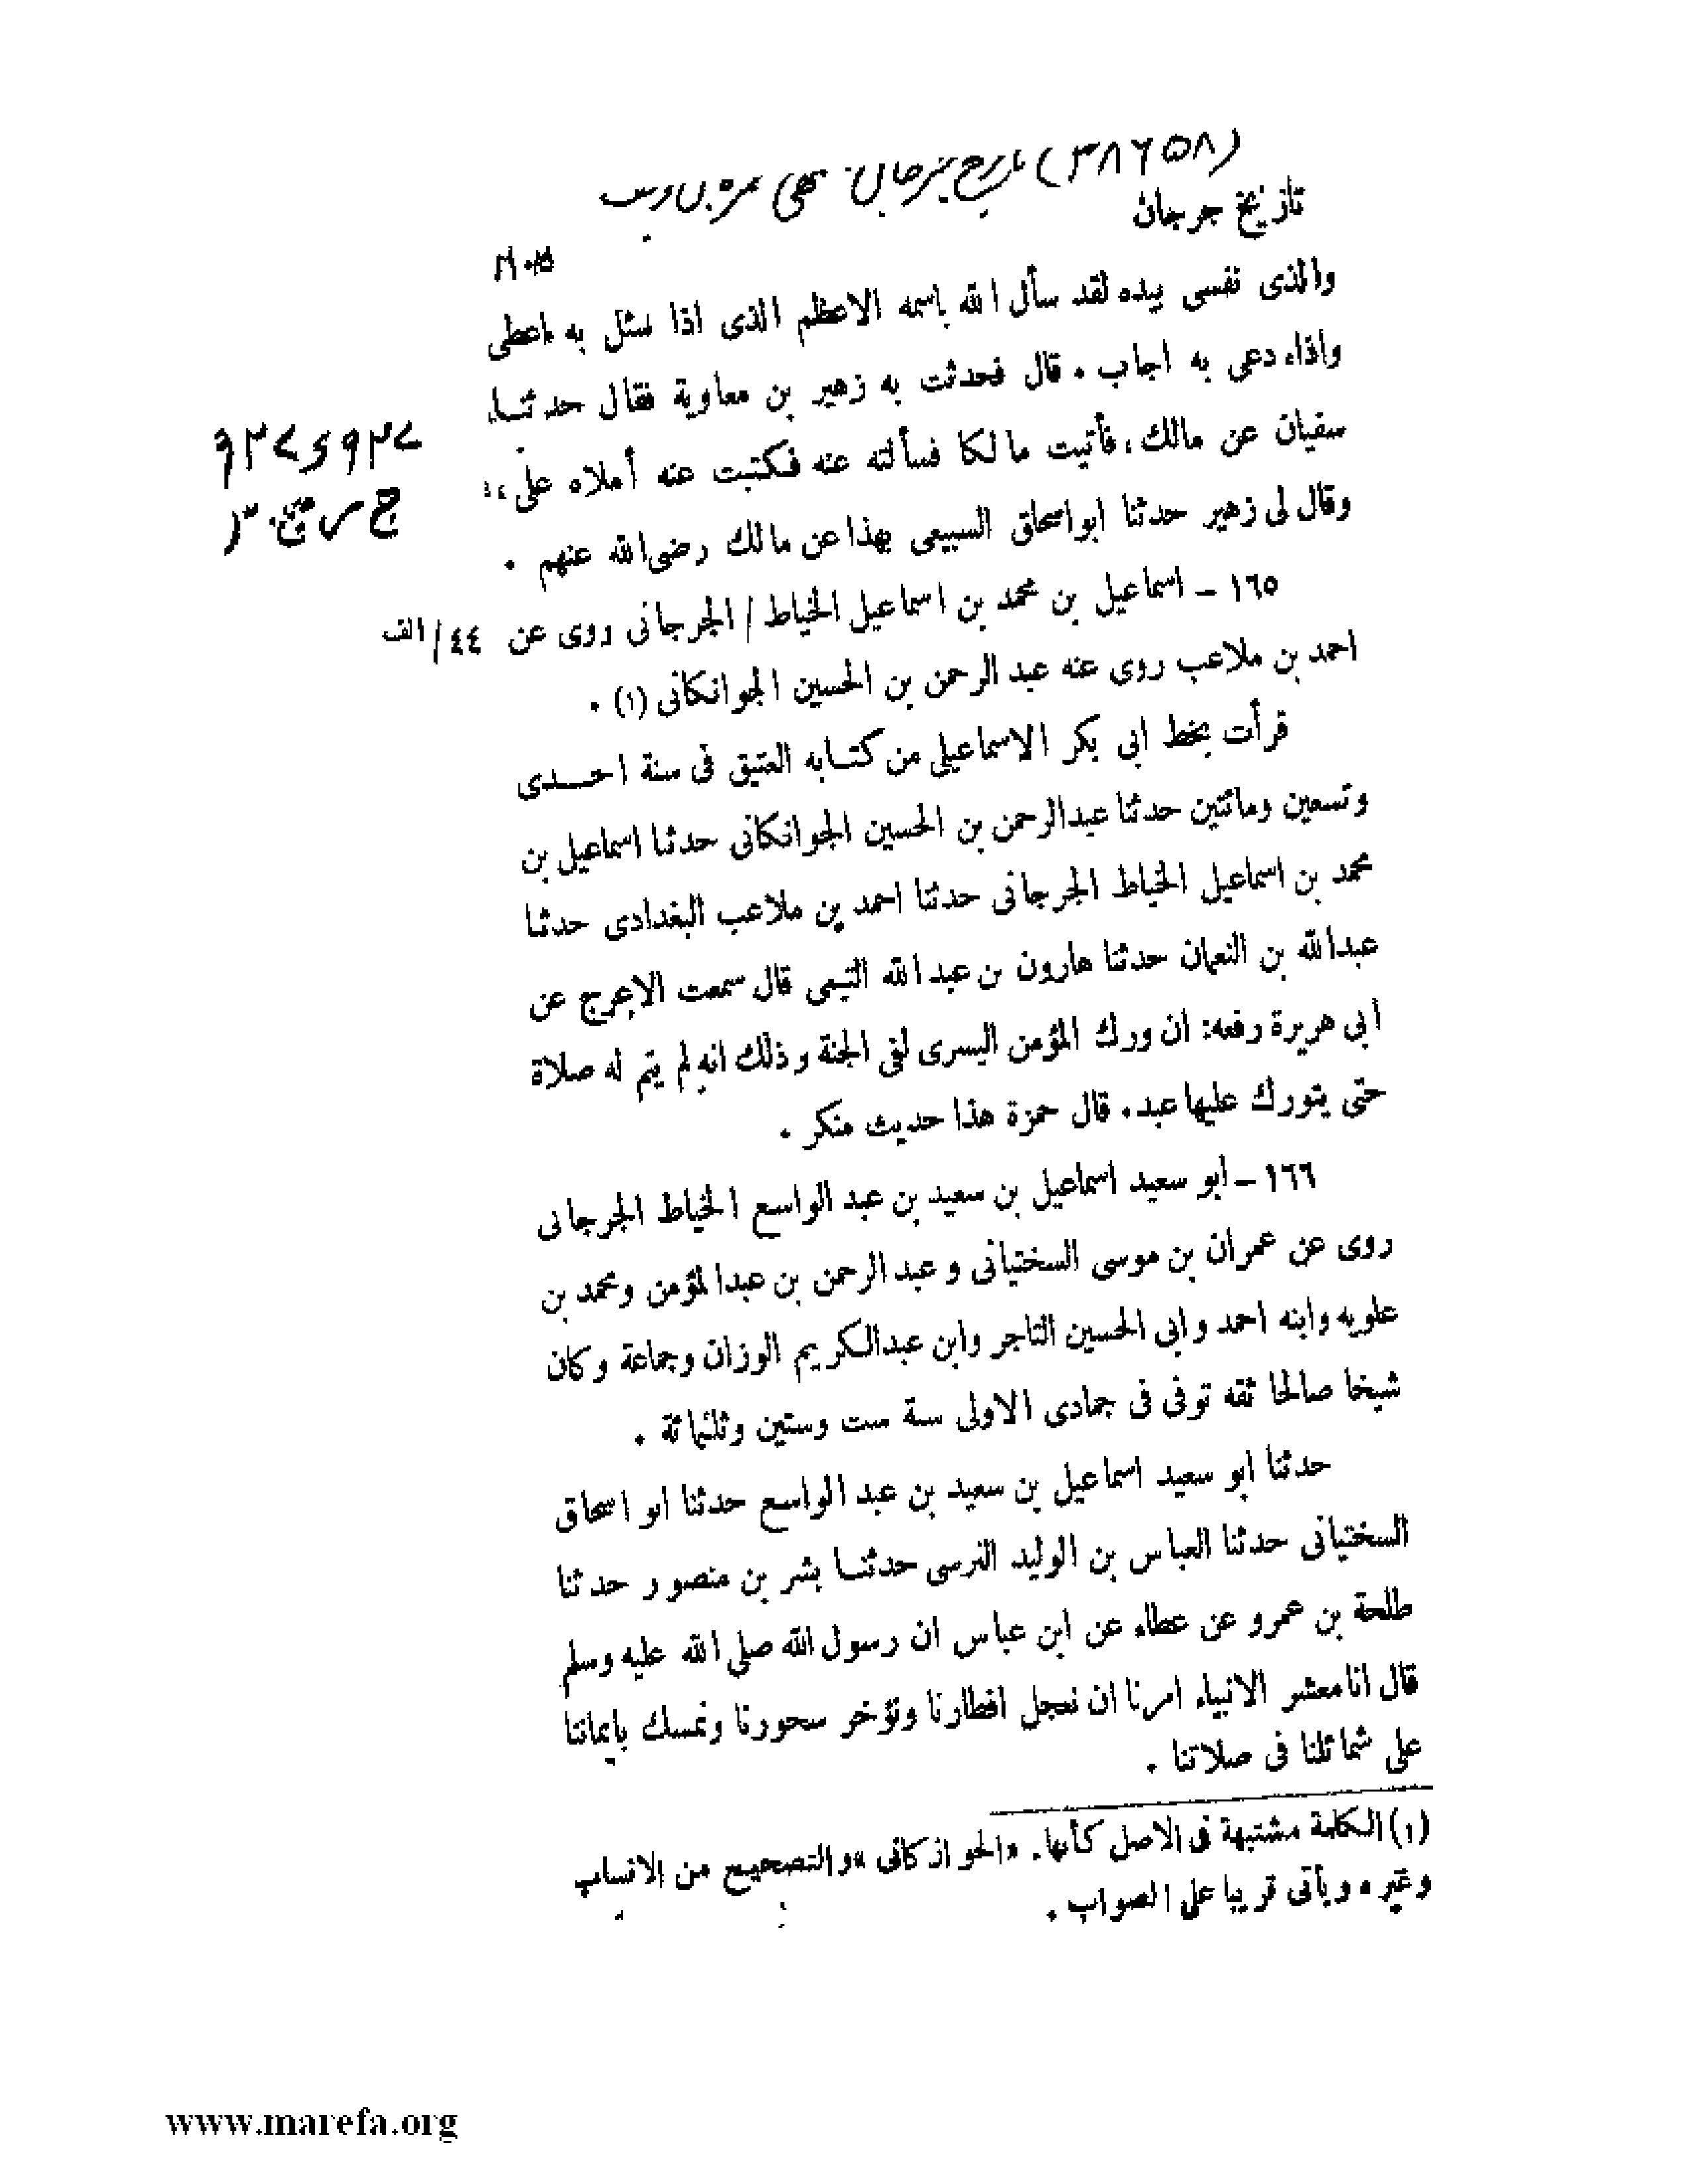 (٣٨٦٥٨) تاريخ جرجان
تاريخ جرجان
والذى نفسى بيده لقد سأل الله باسمه الاعظم الذى اذا سئل به اعطى
واذا دعى به اجاب . قال فحدثت به زهير بن معاوية فقال حدثنا
سفيان عن مالك، فأتيت مالكا فسألته عنه فكتبت عنه أملاه على،
وقال لى زهير حدثنا ابواسحاق السبيعى بهذا عن مالك رضى الله عنهم .
١٦٥ – اسماعيل بن محمد بن اسماعيل الخياط / الجرجانى روى عن ٤٤/الف
احمد بن ملاعب روى عنه عبد الرحمن بن الحسين الجوانكانى (١) .
قرأت بخط ابى بكر الاسماعيلى من كتابه العتيق فى سنة احدى
وتسعين ومائتين حدثنا عبدالرحمن بن الحسين الجوانكانى حدثنا اسماعيل بن
محمد بن اسماعيل الخياط الجرجانى حدثنا احمد بن ملاعب البغدادى حدثنا
عبدالله بن النعمان حدثنا هارون بن عبد الله التيمى قال سمعت الاعرج عن
ابى هريرة رفعه: ان ورك المؤمن اليسرى لفى الجنة وذلك انه لم يتم له صلاة
حتى يتورك عليها عبد. قال حمزة هذا حديث منكر .
١٦٦ – ابو سعيد اسماعيل بن سعيد بن عبد الواسع الخياط الجرجانى
روى عن عمران بن موسى السختيانى و عبد الرحمن بن عبدالمؤمن ومحمد بن
علويه وابنه احمد وابى الحسين التاجر وابن عبدالكريم الوزان وجماعة وكان
شيخا صالحا ثقه توفى فى جمادى الاولى سنة ست وستين وثلثمائة .
حدثنا ابو سعيد اسماعيل بن سعيد بن عبد الواسع حدثنا ابو اسحاق
السختيانى حدثنا العباس بن الوليد النرسى حدثنا بشر بن منصور حدثنا
طلحة بن عمرو عن عطاء عن ابن عباس ان رسول الله صلى الله عليه وسلم
قال انا معشر الانبياء امرنا ان نعجل افطارنا ونؤخر سحورنا ونمسك بايماننا
على شمائلنا فى صلاتنا .
(١) الكلمة مشتبهة فى الاصل كأنها. «الحوازكانى» والتصحيح من الانساب
وغيره ويأتى قريبا على الصواب .
www.marefa.org